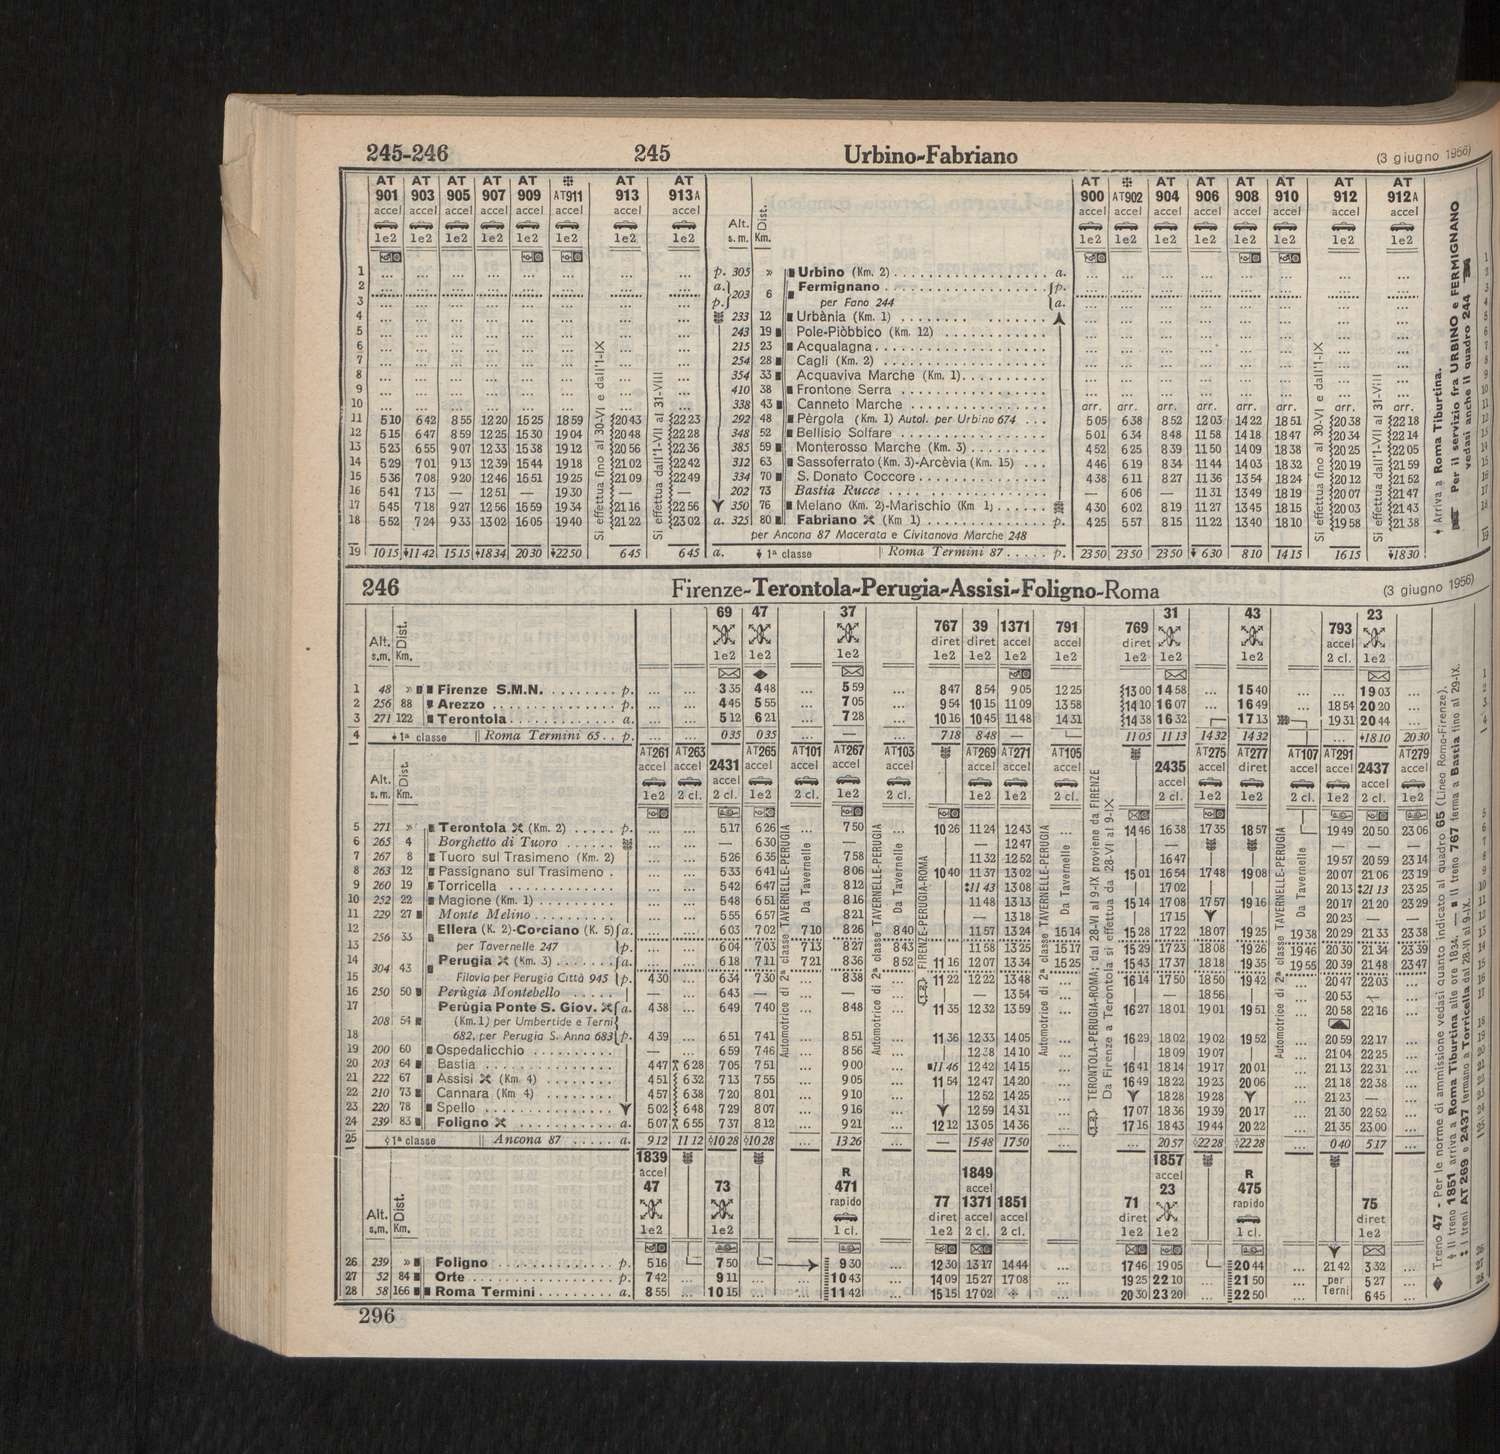 245-246 245 Urbino-Fabriano (3 giugno 1956)
AT AT AT AT AT AT AT AT AT AT AT AT AT AT
901 903 905 907 909 AT911 913 913A 900 AT902 904 906 908 910 912 912A
accel accel accel accel accel accel accel accel Alt. Dist. accel accel accel accel accel accel accel accel
1e2 1e2 1e2 1e2 1e2 1e2 1e2 1e2 s.m. Km. 1e2 1e2 1e2 1e2 1e2 1e2 1e2 1e2
1 ... ... ... ... ... ... ... ... p. 305 » Urbino (Km. 2) a. ... ... ... ... ... ... ... ...
2 ... ... ... ... ... ... ... ... a. 203 6 Fermignano p. ... ... ... ... ... ... ... ...
3 ... ... ... ... ... ... ... ... p. per Fano 244 a. ... ... ... ... ... ... ... ...
4 ... ... ... ... ... ... ... ... 233 12 Urbània (Km. 1) ... ... ... ... ... ... ... ...
5 ... ... ... ... ... ... ... ... 243 19 Pole-Piòbbico (Km. 12) ... ... ... ... ... ... ... ...
6 ... ... ... ... ... ... ... ... 215 23 Acqualagna ... ... ... ... ... ... ... ...
7 ... ... ... ... ... ... ... ... 254 28 Cagli (Km. 2) ... ... ... ... ... ... ... ...
8 ... ... ... ... ... ... ... ... 354 33 Acquaviva Marche (Km. 1) ... ... ... ... ... ... ... ...
9 ... ... ... ... ... ... ... ... 410 38 Frontone Serra ... ... ... ... ... ... ... ...
10 ... ... ... ... ... ... ... ... 338 43 Canneto Marche arr. arr. arr. arr. arr. arr. arr. arr.
11 5 10 6 42 8 55 12 20 15 25 18 59 20 43 22 23 292 48 Pèrgola (Km. 1) Autol. per Urbino 674 ... 5 05 6 38 8 52 12 03 14 22 18 51 20 38 22 18
12 5 15 6 47 8 59 12 25 15 30 19 04 20 48 22 28 348 52 Bellísio Solfare 5 01 6 34 8 48 11 58 14 18 18 47 20 34 22 14
13 5 23 6 55 9 07 12 33 15 38 19 12 20 56 22 36 385 59 Monterosso Marche (Km. 3) 4 52 6 25 8 39 11 50 14 09 18 38 20 25 22 05
14 5 29 7 01 9 13 12 39 15 44 19 18 21 02 22 42 312 63 Sassoferrato (Km. 3)-Arcèvia (Km. 15) ... 4 46 6 19 8 34 11 44 14 03 18 32 20 19 21 59
15 5 36 7 08 9 20 12 46 15 51 19 25 21 09 22 49 334 70 S. Donato Coccore 4 38 6 11 8 27 11 36 13 54 18 24 20 12 21 52
16 5 41 7 13 — 12 51 — 19 30 — — 202 73 Bastia Rucce — 6 06 — 11 31 13 49 18 19 20 07 21 47
17 5 45 7 18 9 27 12 56 15 59 19 34 21 16 22 56 350 76 Melano (Km. 2)-Marischio (Km 1) 4 30 6 02 8 19 11 27 13 45 18 15 20 03 21 43
18 5 52 7 24 9 33 13 02 16 05 19 40 21 22 23 02 a. 325 80 Fabriano (Km 1) p. 4 25 5 57 8 15 11 22 13 40 18 10 19 58 21 38
per Ancona 87 Macerata e Civitanova Marche 248
19 10 15 11 42 15 15 18 34 20 30 22 50 6 45 6 45 a. 1ª classe Roma Termini 87 p. 23 50 23 50 23 50 6 30 8 10 14 15 16 15 18 30
Si effettua fino al 30-VI e dall'1-IX
Si effettua dall'1-VII al 31-VIII
Si effettua fino al 30-VI e dall'1-IX
Si effettua dall'1-VII al 31-VIII
Arriva a Roma Tiburtina.
Per il servizio fra URBINO e FERMIGNANO
vedasi anche il quadro 244
246 Firenze-Terontola-Perugia-Assisi-Foligno-Roma (3 giugno 1956)
69 47 37 767 39 1371 791 769 31 43 793 23
Alt. Dist. diret diret accel accel diret accel
s.m. Km. 1e2 1e2 1e2 1e2 1e2 1e2 1e2 1e2 1e2 1e2 2 cl. 1e2
1 48 » Firenze S.M.N. p. ... ... 3 35 4 48 ... 5 59 ... 8 47 8 54 9 05 12 25 13 00 14 58 ... 15 40 ... ... 19 03 ...
2 256 88 Arezzo p. ... ... 4 45 5 55 ... 7 05 ... 9 54 10 15 11 09 13 58 14 10 16 07 ... 16 49 ... 18 54 20 20 ...
3 271 122 Terontola a. ... ... 5 12 6 21 ... 7 28 ... 10 16 10 45 11 48 14 31 14 38 16 32 17 13 19 31 20 44 ...
4 1ª classe Roma Termini 65 p. ... ... 0 35 0 35 ... — ... 7 18 8 48 — 11 05 11 13 14 32 14 32 ... 18 10 20 30
AT261 AT263 AT265 AT101 AT267 AT103 AT269 AT271 AT105 AT275 AT277 AT107 AT291 AT279
accel accel 2431 accel accel accel accel accel accel accel 2435 accel diret accel accel 2437 accel
Alt. Dist. accel accel accel
s.m. Km. 1e2 2 cl. 2 cl. 1e2 2 cl. 1e2 2 cl. 1e2 1e2 2 cl. 2 cl. 1e2 1e2 2 cl. 1e2 2 cl. 1e2
5 271 » Terontola (Km. 2) p. ... ... 5 17 6 26 7 50 10 26 11 24 12 43 ... 14 46 16 38 17 35 18 57 19 49 20 50 23 06
6 265 4 Borghetto di Tuoro ... ... — 6 30 — — 12 47 ... — — —
7 267 8 Tuoro sul Trasimeno (Km. 2) ... ... 5 26 6 35 7 58 11 32 12 52 16 47 19 57 20 59 23 14
8 263 12 Passignano sul Trasimeno ... ... 5 33 6 41 8 06 10 40 11 37 13 02 15 01 16 54 17 48 19 08 20 07 21 06 23 19
9 260 19 Torricella ... ... 5 42 6 47 8 12 11 43 13 08 17 02 20 13 21 13 23 25
10 252 22 Magione (Km. 1) ... ... 5 48 6 51 8 16 11 48 13 13 15 14 17 08 17 57 19 16 20 17 21 20 23 29
11 229 27 Monte Melino ... ... 5 55 6 57 8 21 — 13 18 17 15 20 23 — —
12 256 33 Ellera (K. 2)-Corciano (K. 5) a. ... ... 6 03 7 02 7 10 8 26 8 40 11 57 13 24 15 14 15 28 17 22 18 07 19 25 19 38 20 29 21 33 23 38
13 per Tavernelle 247 p. ... ... 6 04 7 03 7 13 8 27 8 43 11 58 13 25 15 17 15 29 17 23 18 08 19 26 19 46 20 30 21 34 23 39
14 304 43 Perugia (Km. 3) a. ... ... 6 18 7 11 7 21 8 36 8 52 11 16 12 07 13 34 15 25 15 43 17 37 18 18 19 35 19 55 20 39 21 48 23 47
15 Filovia per Perugia Città 945 p. 4 30 ... 6 34 7 30 8 38 11 22 12 22 13 48 ... 16 14 17 50 18 50 19 42 ... 20 47 22 03 ...
16 250 50 Perùgia Montebello — ... 6 43 — — 13 54 ... — 18 56 ... 20 53 ...
17 208 54 Perùgia Ponte S. Giov. a. 4 38 ... 6 49 7 40 8 48 11 35 12 32 13 59 ... 16 27 18 01 19 01 19 51 ... 20 58 22 16 ...
(Km.1) per Umbertide e Terni
18 682, per Perugia S. Anna 683 p. 4 39 ... 6 51 7 41 8 51 11 36 12 33 14 05 16 29 18 02 19 02 19 52 20 59 22 17 ...
19 200 60 Ospedalicchio — ... 6 59 7 46 8 56 12 38 14 10 18 09 19 07 21 04 22 25 ...
20 203 64 Bastia 4 47 6 28 7 05 7 51 ... 9 00 ... 11 46 12 42 14 15 ... 16 41 18 14 19 17 20 01 ... 21 13 22 31 ...
21 222 67 Assisi (Km 4) 4 51 6 32 7 13 7 55 ... 9 05 ... 11 54 12 47 14 20 ... 16 49 18 22 19 23 20 06 ... 21 18 22 38 ...
22 210 73 Cannara (Km 4) 4 57 6 38 7 20 8 01 ... 9 10 ... 12 52 14 25 ... 18 28 19 28 ... 21 23 — ...
23 220 78 Spello 5 02 6 48 7 29 8 07 ... 9 16 ... 12 59 14 31 ... 17 07 18 36 19 39 20 17 ... 21 30 22 52 ...
24 239 83 Foligno a. 5 07 6 55 7 37 8 12 ... 9 21 ... 12 12 13 05 14 36 ... 17 16 18 43 19 44 20 22 ... 21 35 23 00 ...
25 1ª classe Ancona 87 a. 9 12 11 12 10 28 10 28 ... 13 26 ... — 15 48 17 50 ... ... 20 57 22 28 22 28 ... 0 40 5 17 ...
Automotrice di 2ª classe TAVERNELLE-PERUGIA
Da Tavernelle
Automotrice di 2ª classe TAVERNELLE-PERUGIA
Da Tavernelle
FIRENZE-PERUGIA-ROMA
Automotrice di 2ª classe TAVERNELLE-PERUGIA
Da Tavernelle
TERONTOLA-PERUGIA-ROMA; dal 28-VI al 9-IX proviene da FIRENZE
Da Firenze a Terontola si effettua da 28-VI al 9-IX
Automotrice di 2ª classe TAVERNELLE-PERUGIA
Da Tavernelle
1839 1857
accel R 1849 accel R
47 73 471 77 accel 71 23 475 75
Alt. Dist. rapido diret 1371 1851 diret rapido diret
s.m. Km. 1e2 1e2 1 cl. 1e2 accel accel 1e2 1e2 1 cl. 1e2
2 cl. 2 cl.
26 239 » Foligno p. 5 16 7 50 9 30 ... 12 30 13 17 14 44 ... 17 46 19 05 20 44 ... 21 42 3 32 ...
27 52 84 Orte p. 7 42 ... 9 11 ... ... 10 43 ... 14 09 15 27 17 08 ... 19 25 22 10 ... 21 50 ... per 5 27 ...
28 58 166 Roma Termini a. 8 55 ... 10 15 ... ... 11 42 ... 15 15 17 02 ... 20 30 23 20 ... 22 50 ... Terni 6 45 ...
Treno 47 - Per le norme di ammissione vedasi quanto indicato al quadro 65 (Linea Roma-Firenze).
Il treno 1851 arriva a Roma Tiburtina alle ore 18 34. — Il treno 767 ferma a Bastia fino al 29-IX.
I treni AT 269 e 2437 fermano a Torricella dal 28-VI al 9-IX.
296